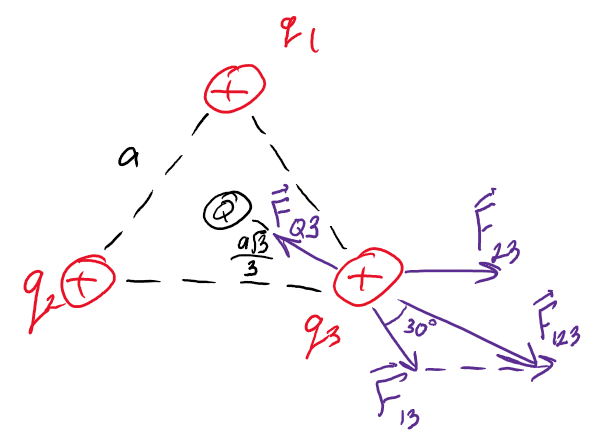 q₁
+
a
Q
F⃗_Q3
a√3/3
F⃗_23
q₂
+
+
q₃
30°
F⃗_123
F⃗_13